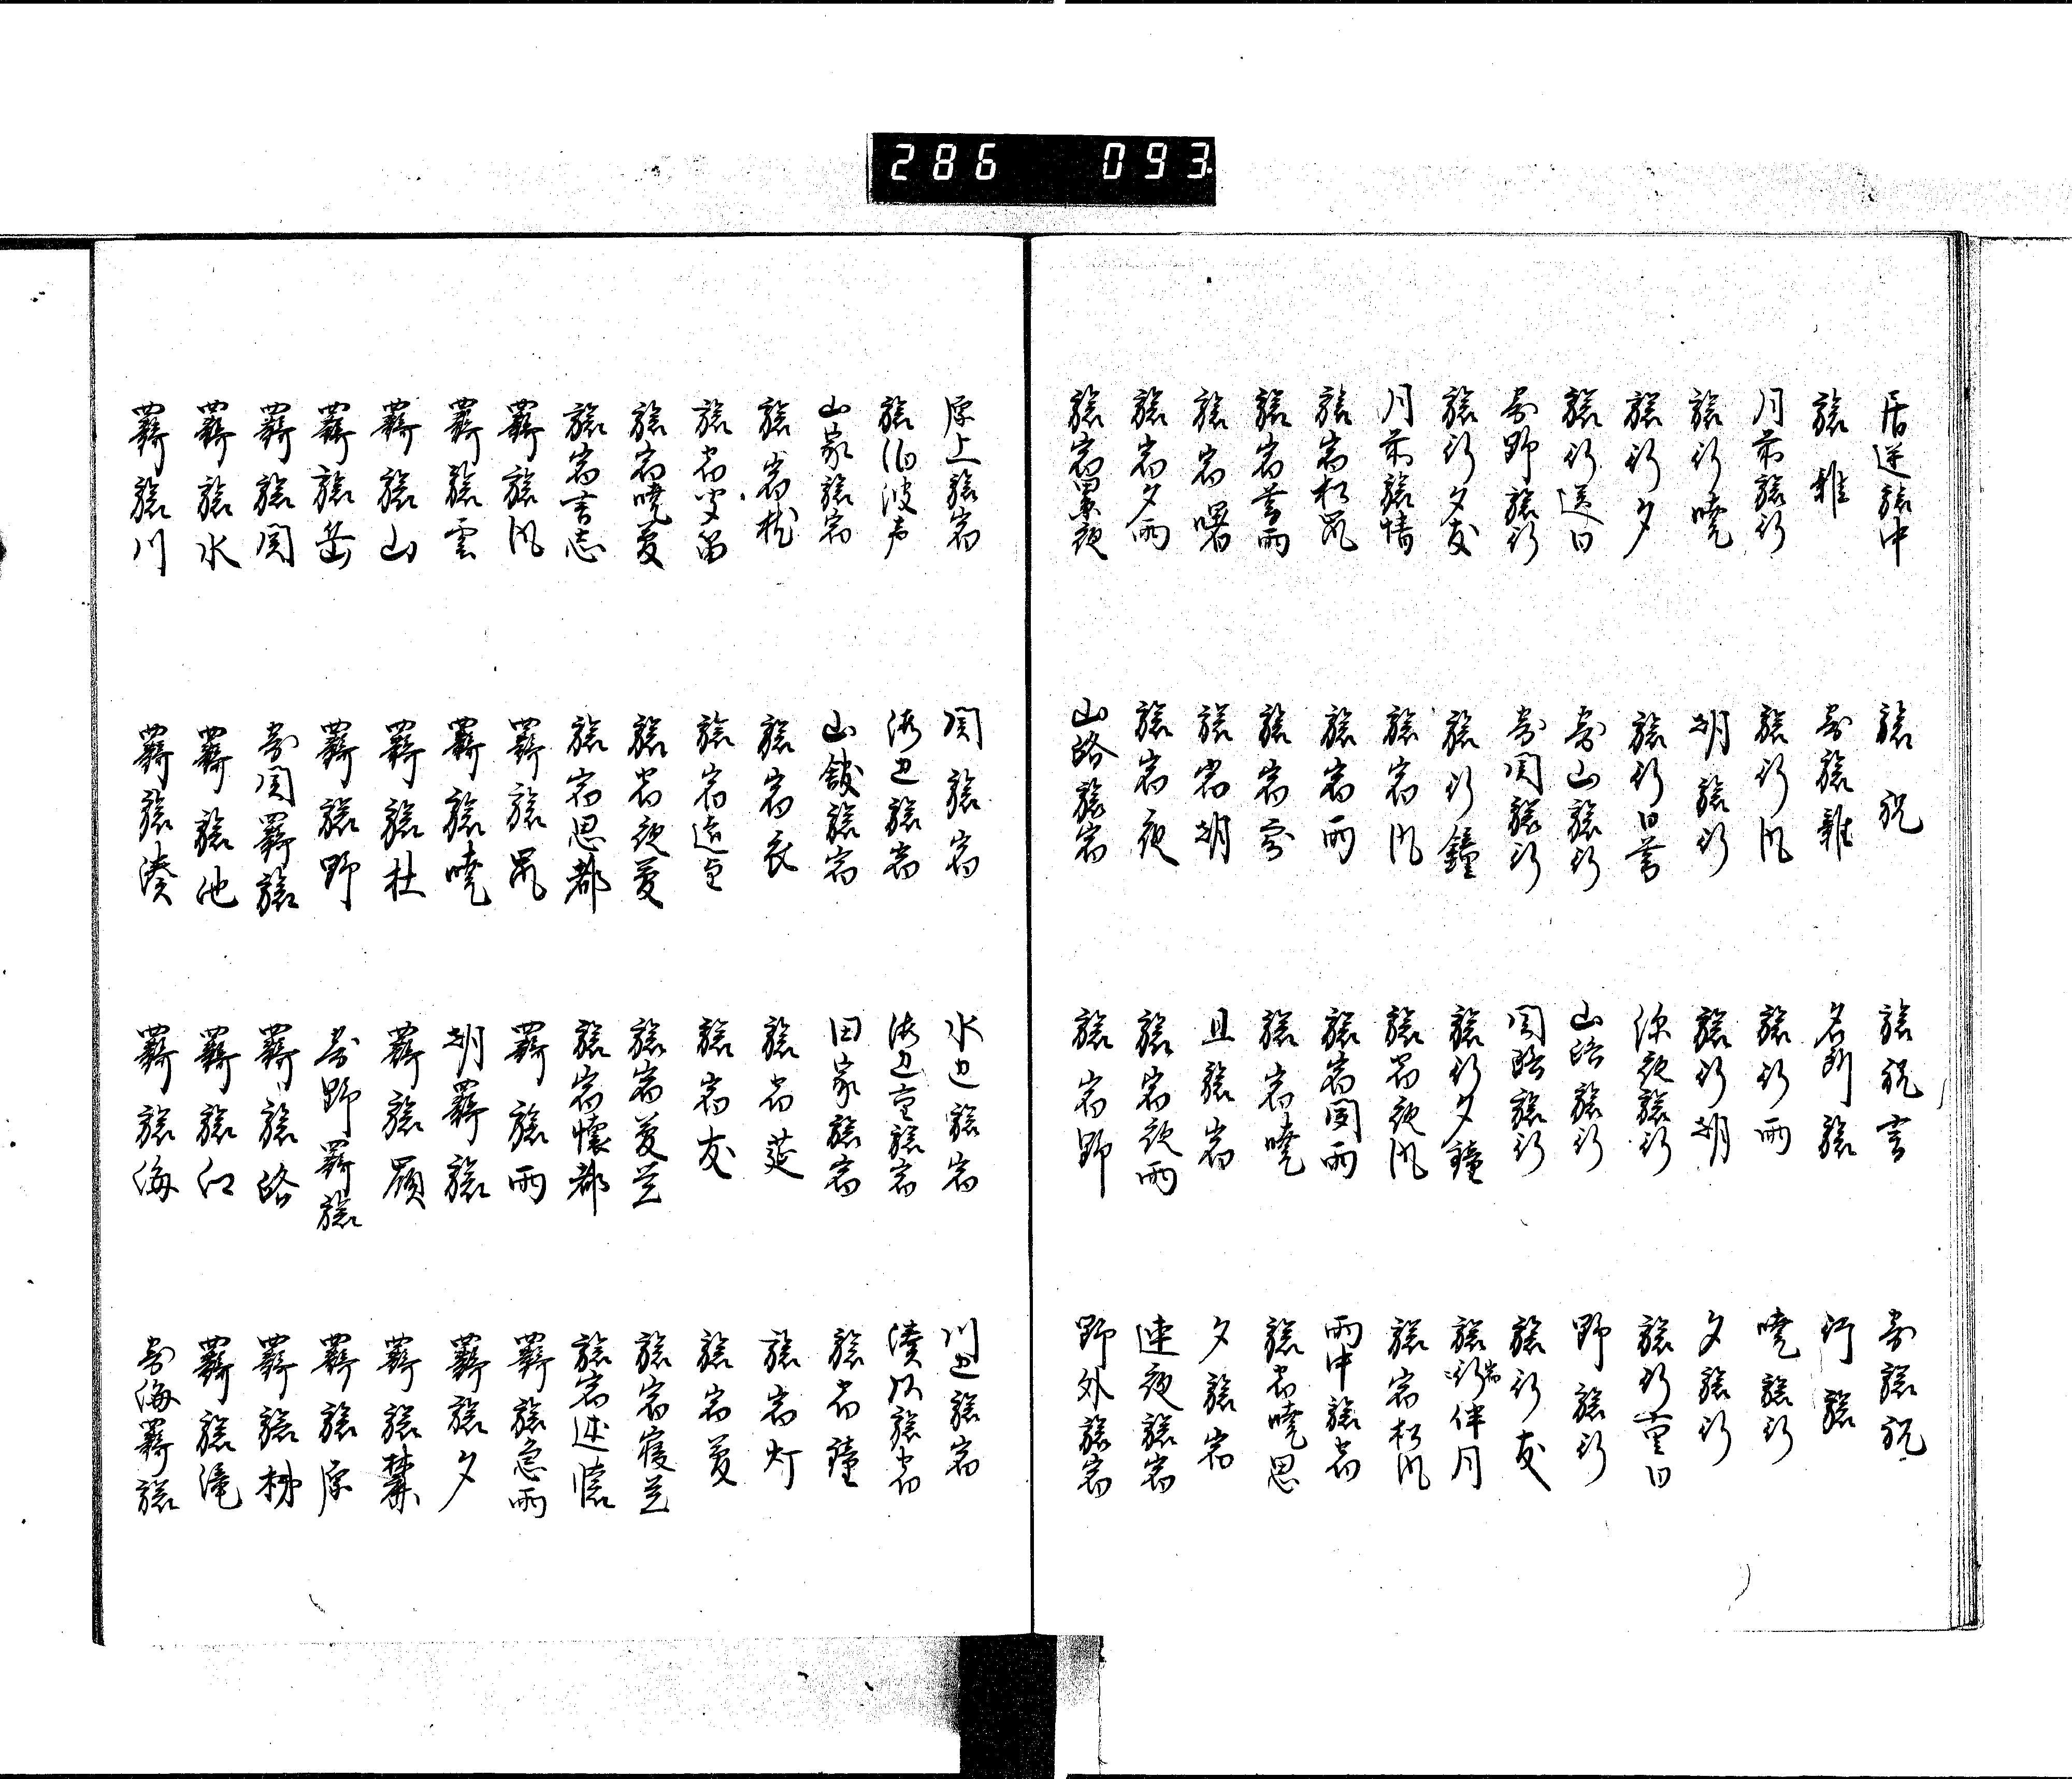 居逆旅中 旅祝 旅祝言 寄旅祝
旅雑 寄旅雑 名所旅 行旅
月前旅行 旅行風 旅行雨 暁旅行
旅行暁 朝旅行 旅行朝 夕旅行
旅行夕 旅行日暮 深夜旅行 旅行重日
旅行送日 寄山旅行 山路旅行 野旅行
寄野旅行 寄関旅行 関路旅行 旅行友
旅行夕友 旅行鐘 旅行夕鐘 旅行伴月
月前旅情 旅宿風 旅宿夜風 旅宿松風
旅宿松嵐 旅宿雨 旅宿聞雨 雨中旅宿
旅宿暮雨 旅宿 旅宿暁 旅宿暁思
旅宿曙 旅宿朝 旦旅宿 夕旅宿
旅宿夕雨 旅宿夜 旅宿夜雨 連夜旅宿
旅宿累夜 山路旅宿 旅宿野 野外旅宿
原上旅宿 関旅宿 水辺旅宿 川辺旅宿
旅泊波声 海辺旅宿 海辺重旅宿 湊頭旅宿
山家旅宿 山館旅宿 田家旅宿 旅宿鐘
旅宿枕 旅宿衣 旅宿莚 旅宿灯
旅宿聞笛 旅宿遠望 旅宿友 旅宿夢
旅宿暁夢 旅宿夜夢 旅宿夢覚 旅宿寝覚
旅宿言志 旅宿思都 旅宿懐都 旅宿述懐
羇旅風 羇旅嵐 羇旅雨 羇旅急雨
羇旅雲 羇旅暁 朝羇旅 羇旅夕
羇旅山 羇旅杜 羇旅嶺 羇旅麓
羇旅岳 羇旅野 寄野羇旅 羇旅原
羇旅関 寄関羇旅 羇旅路 羇旅梯
羇旅水 羇旅池 羇旅江 羇旅滝
羇旅川 羇旅湊 羇旅海 寄海羇旅
286 093